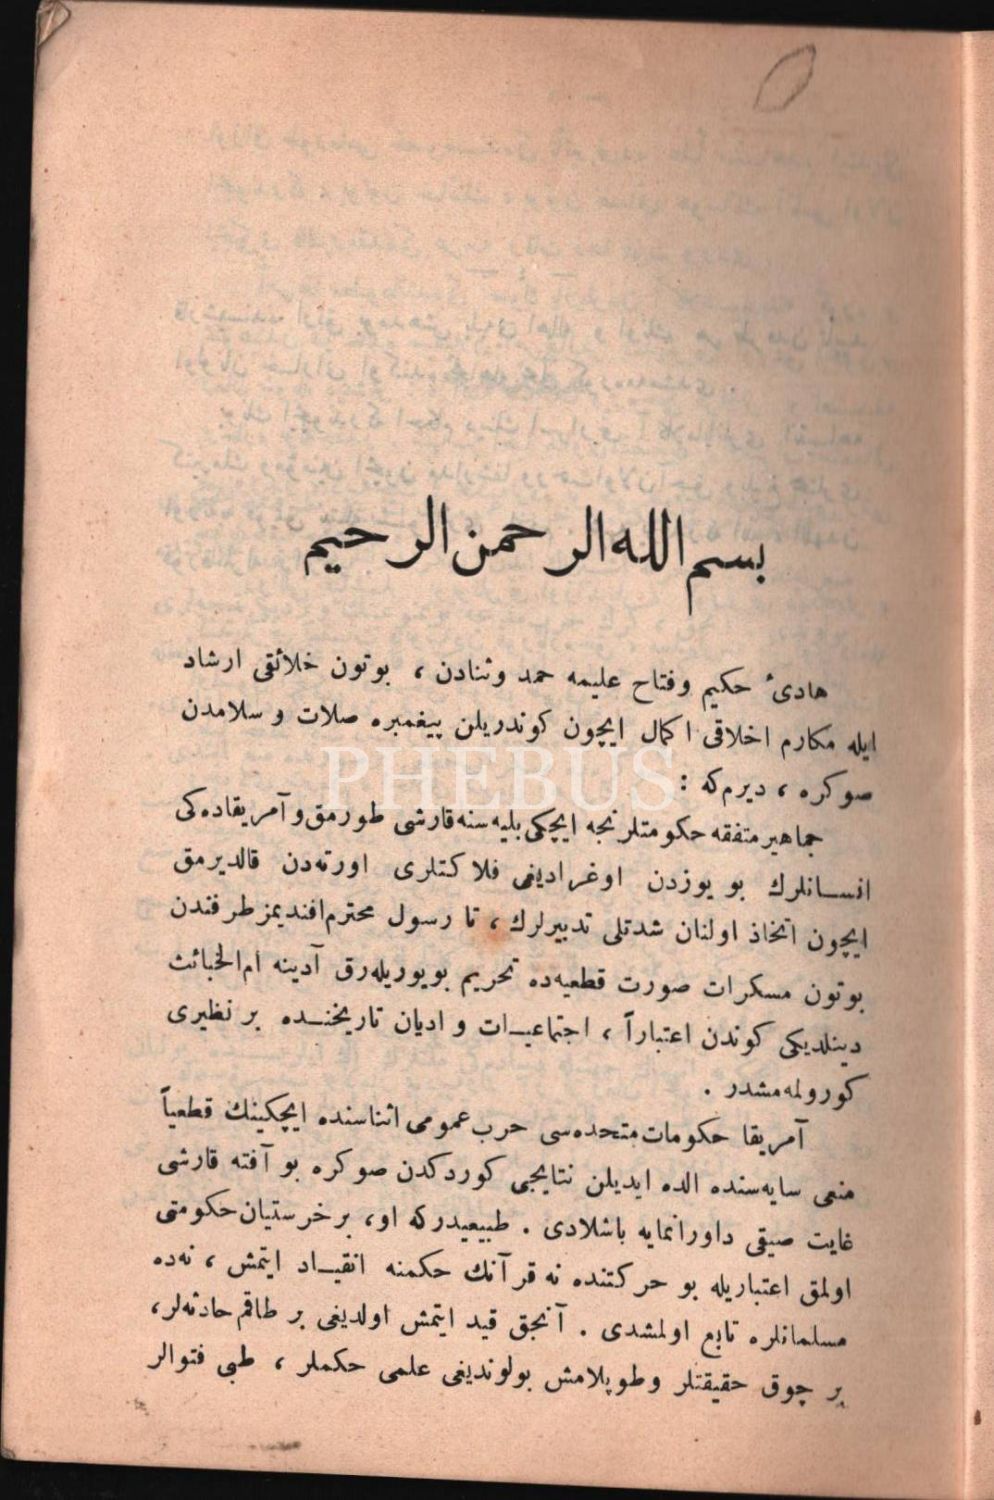 بسم الله الرحمن الرحيم
هادئ حكيم وفتاح عليمه حمد وثنادن ، بوتون خلائقى ارشاد
ايله مكارم اخلاقى اكمال ايچون كوندريلن پيغمبره صلات و سلامدن
صوكره ، ديرم كه :
جماهير متفقه حكومتلرنجه ايچكى بليه سنه قارشى طورمق و آمريقاده كى
انسانلرك بو يوزدن اوغراديغى فلاكتلرى اورته دن قالديرمق
ايچون اتخاذ اولنان شدتلى تدبيرلرك ، تا رسول محترم افنديمز طرفندن
بوتون مسكرات صورت قطعيه ده تحريم بويوريله رق آدينه ام الخبائث
دينلديكى كوندن اعتباراً ، اجتماعيات و اديان تاريخنده بر نظيرى
كورولمه مشدر .
آمريقا حكومات متحده سى حرب عمومى اثناسنده ايچكينك قطعياً
منعى سايه سنده الده ايديلن نتايجى كوردكدن صوكره بو آفته قارشى
غايت صيقى داورانمايه باشلادى . طبيعيدركه او، بر خرستيان حكومتى
اولمق اعتباريله بو حركتنده نه قرآنك حكمنه انقياد ايتمش ، نه ده
مسلمانلره تابع اولمشدى . آنجق قيد ايتمش اولديغى بر طاقم حادثه لر،
بر چوق حقيقتلر وطوپلامش بولونديغى علمى حكملر ، طبى فتوالر
PHEBUS